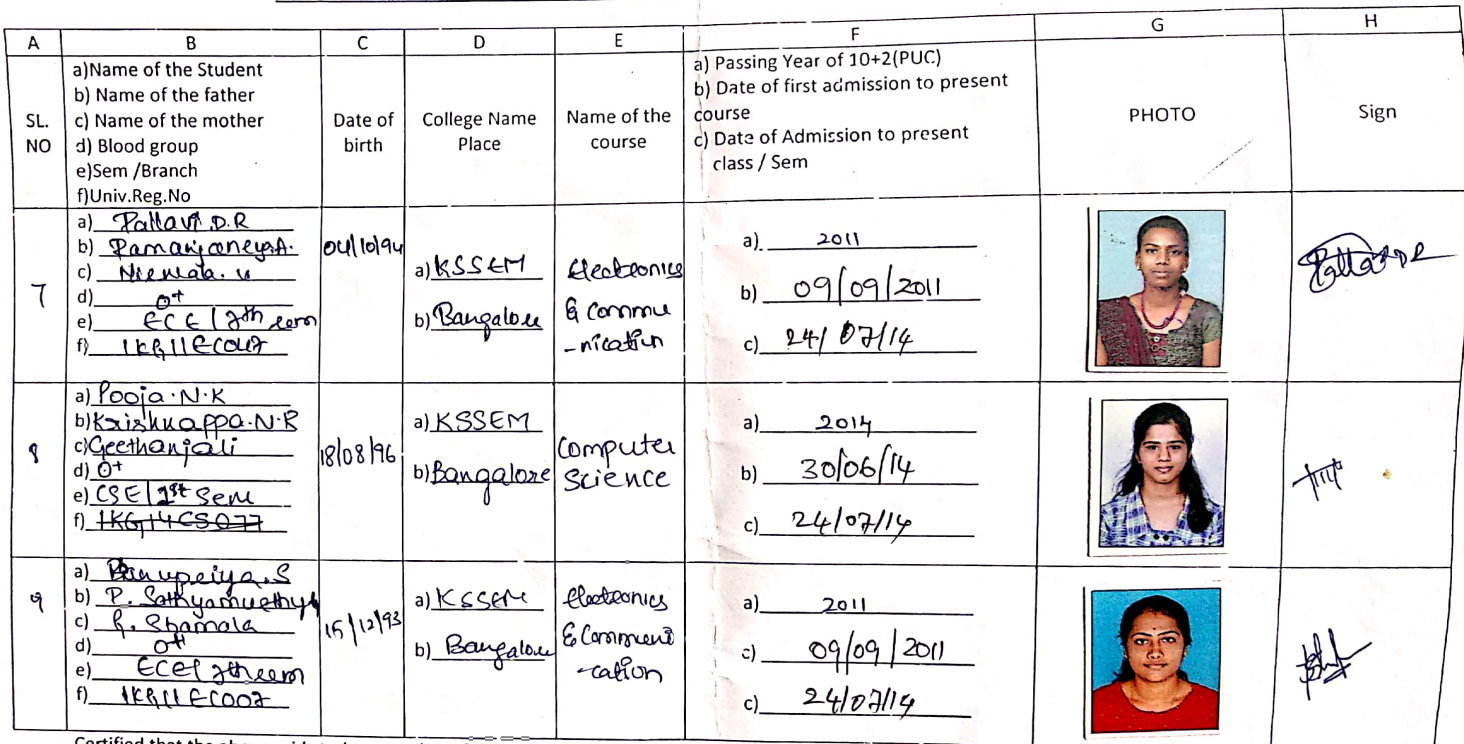 A B C D E F G H
SL. NO
a)Name of the Student
b) Name of the father
c) Name of the mother
d) Blood group
e)Sem /Branch
f)Univ.Reg.No
Date of birth
College Name Place
Name of the course
a) Passing Year of 10+2(PUC)
b) Date of first admission to present
course
c) Date of Admission to present
class / Sem
PHOTO
Sign
7
a) Pallavi D.R
b)
c)
d) O+
e) ECE / 7th sem
f) 1KG11EC047
04/10/94
a) KSSEM
b) Bangalore
Electronics
& Commu
-nication
a) 2011
b) 09/09/2011
c) 24/07/14
8
a) Pooja.N.K
b) Krishnappa.N.R
c) Geethanjali
d) O+
e) CSE / 1st Sem
f) 1KG14CS077
18/08/96
a) KSSEM
b) Bangalore
Computer
Science
a) 2014
b) 30/06/14
c) 24/07/14
9
a) S
b) P.
c) Shamala
d) O+
e) ECE / 7th sem
f) 1KG11EC007
15/12/93
a) KSSEM
b) Bangalore
Electronics
& Communi
-cation
a) 2011
c) 09/09/2011
c) 24/07/14
Certified that the above